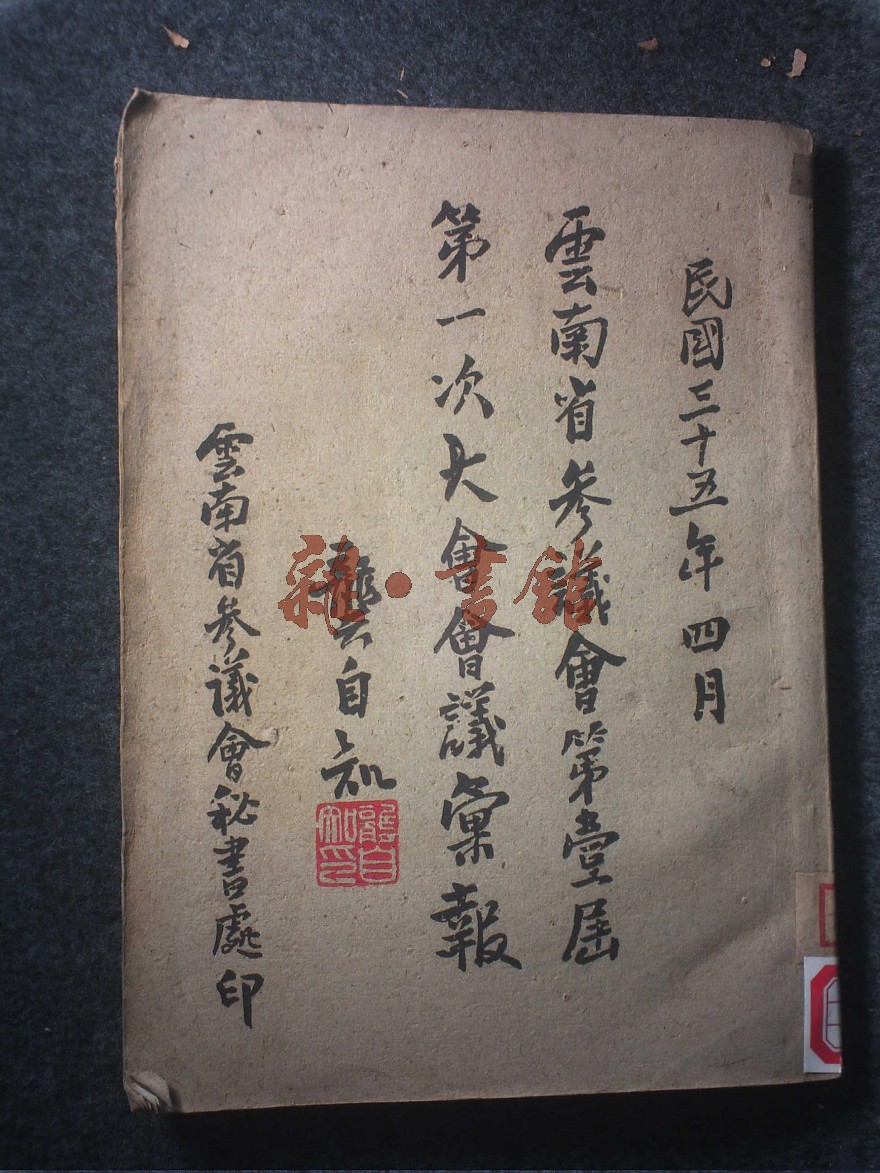 民國三十五年四月
雲南省参議會第壹屆
第一次大會會議彙報
龔自知
龔自知印
雲南省参議會秘書處印
雜·書館